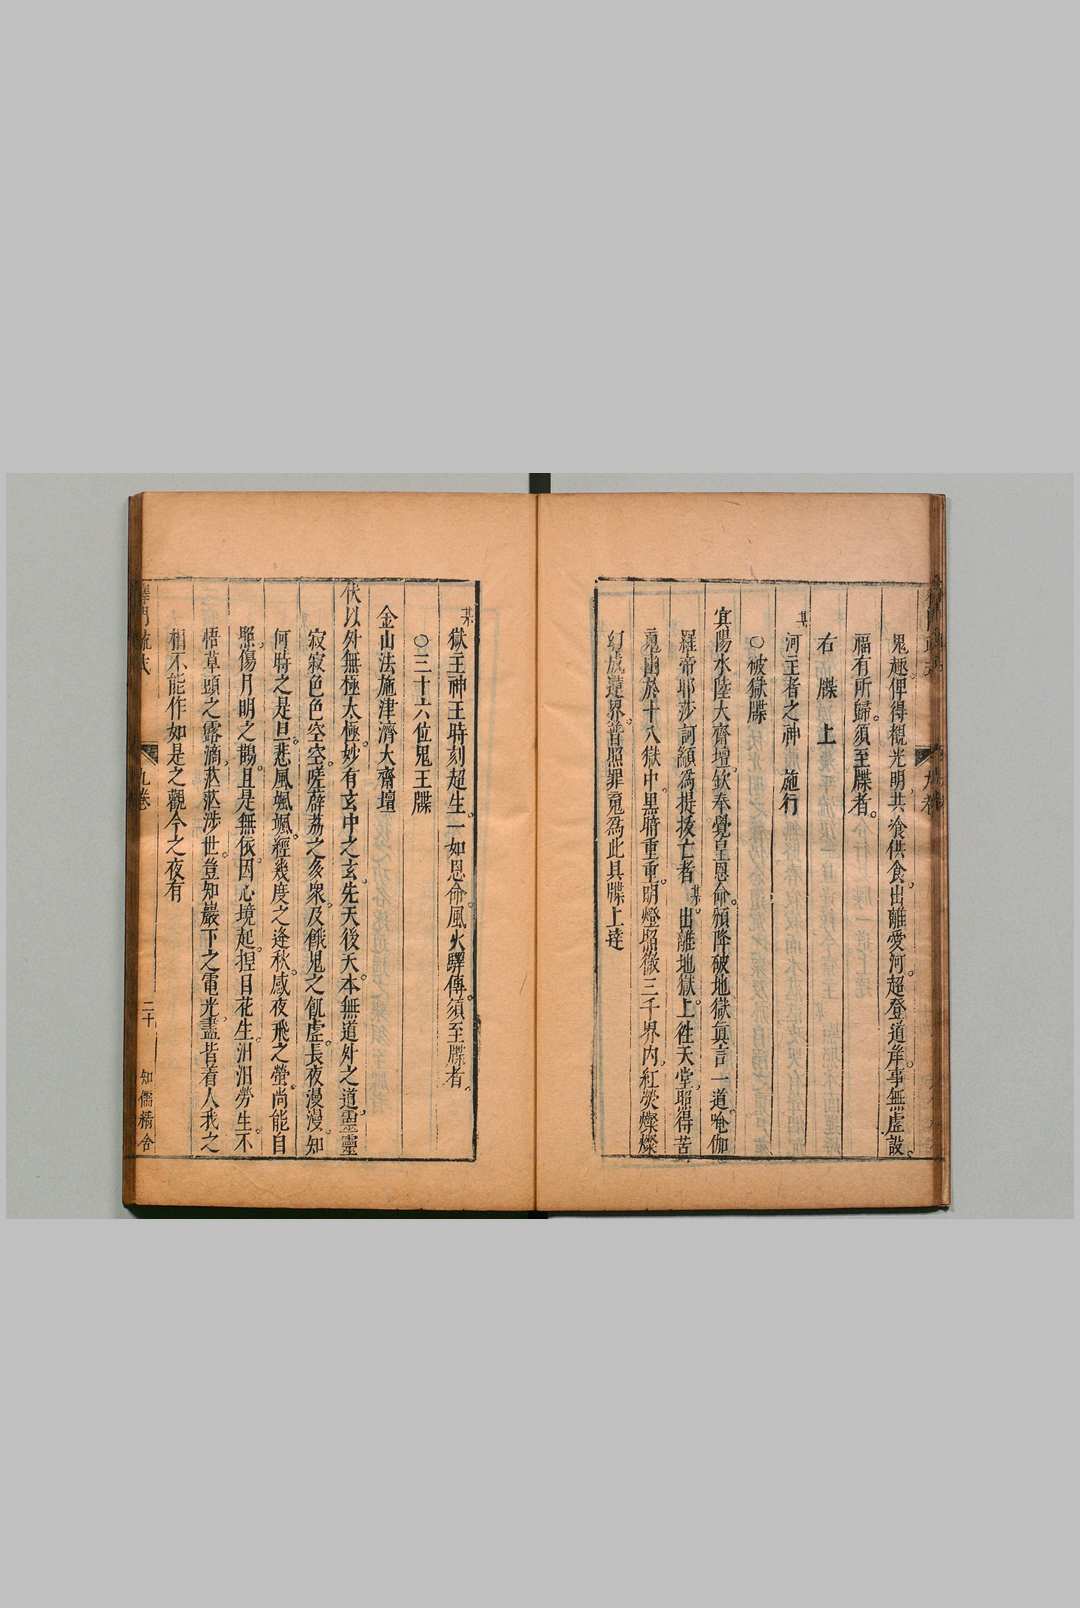 鬼趣俾得覩光明、共飡供食、出離愛河。超登道岸。事無虛設。
福有所歸。須至牒者。
右牒上
某河主者之神 施行
○破獄牒
宜陽水陸大齋壇、欽奉覺皇恩命。頒降破地獄眞言一道。唵伽
羅帝耶莎訶。顓爲提拔亡者某。出離地獄。上徃天堂、照得苦
䰟幽於十八獄中。黒暗重重。明燈照徹三千界内、紅熒燦燦
幻成蓮界。普照罪䰟。爲此具牒上達
某獄王神王。時刻超生。一如恩命。風火驛傳。須至牒者。
○三十六位鬼王牒
金山法施津濟大齋壇
伏以外無極太極。妙有玄中之玄。先天後天。本無道外之道。靈靈
寂寂色色空空。嗟薜荔之多衆。及餓鬼之飢虛。長夜漫漫。知
何時之是旦。悲風颯颯。經幾度之逢秋。感夜飛之螢。尚能自
照。傷月明之鵲。且是無依。因心境起。捏目花生。汩汩勞生。不
悟草頭之露滴。茲茲涉世。豈知巖下之電光。盡皆着人我之
相。不能作如是之觀。今之夜有
釋門疏式
九卷
二十
知儒精舍
九卷